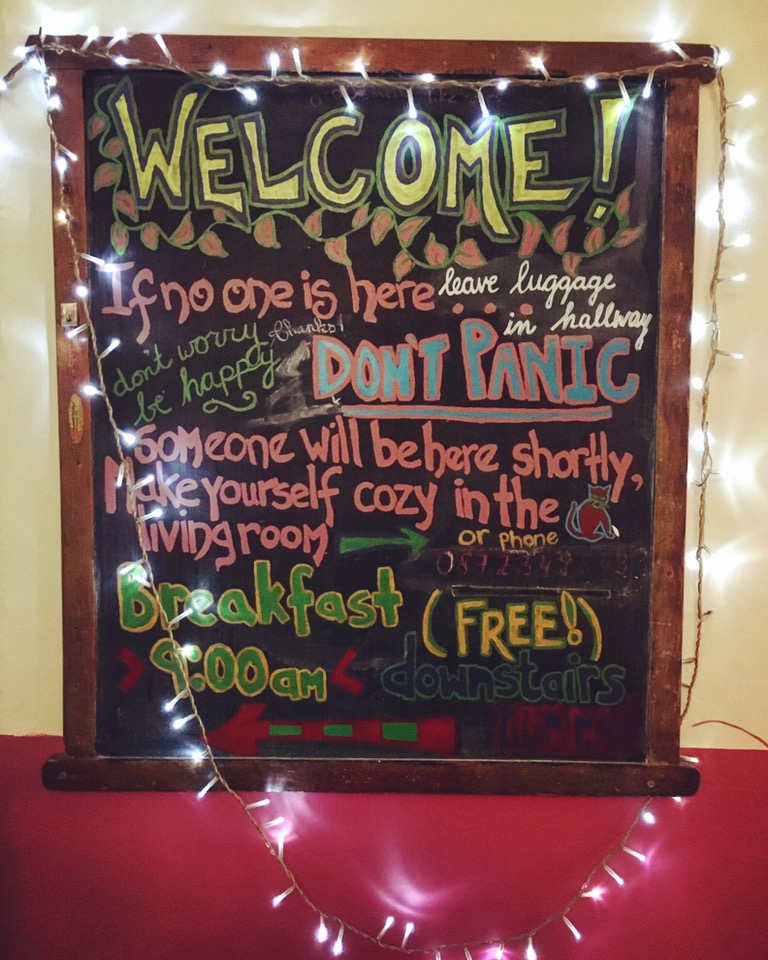 WELCOME!
If no one is here....
leave luggage
in hallway
thanks!
don't worry
be happy
DON'T PANIC
Someone will be here shortly,
Make yourself cozy in the
living room
or phone
Breakfast (FREE!)
9:00am downstairs